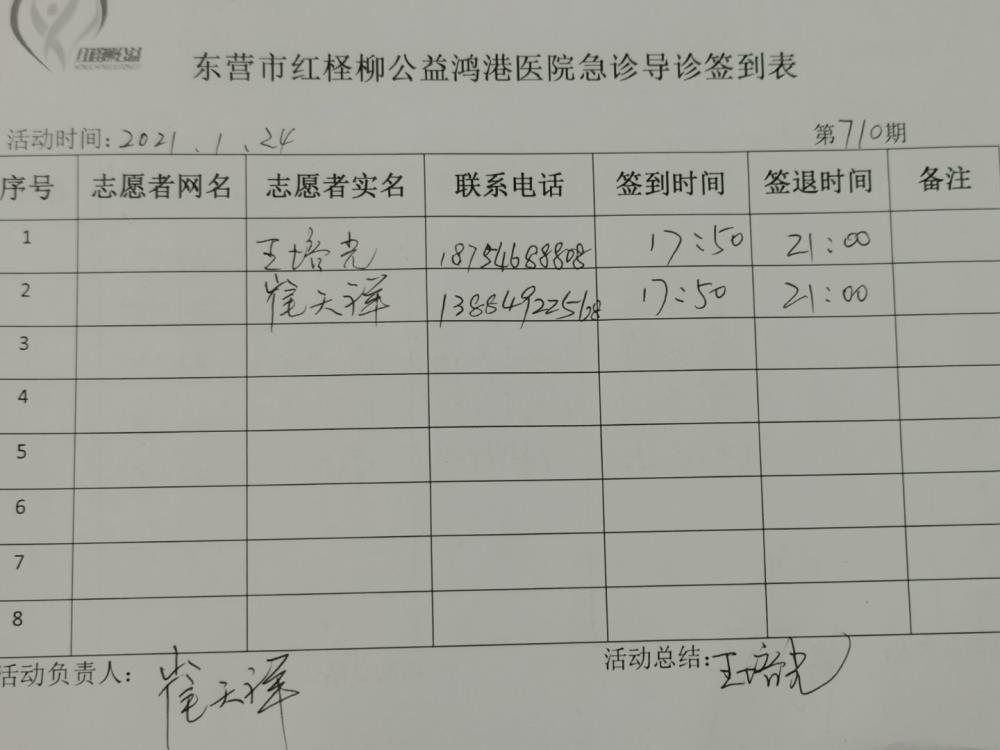 红柽柳公益
东营市红柽柳公益鸿港医院急诊导诊签到表
活动时间:2021.1.24 第710期
序号 志愿者网名 志愿者实名 联系电话 签到时间 签退时间 备注
1 王培光 18754688808 17:50 21:00
2 崔天祥 13884922568 17:50 21:00
3
4
5
6
7
8
活动负责人:崔天祥 活动总结:王培光